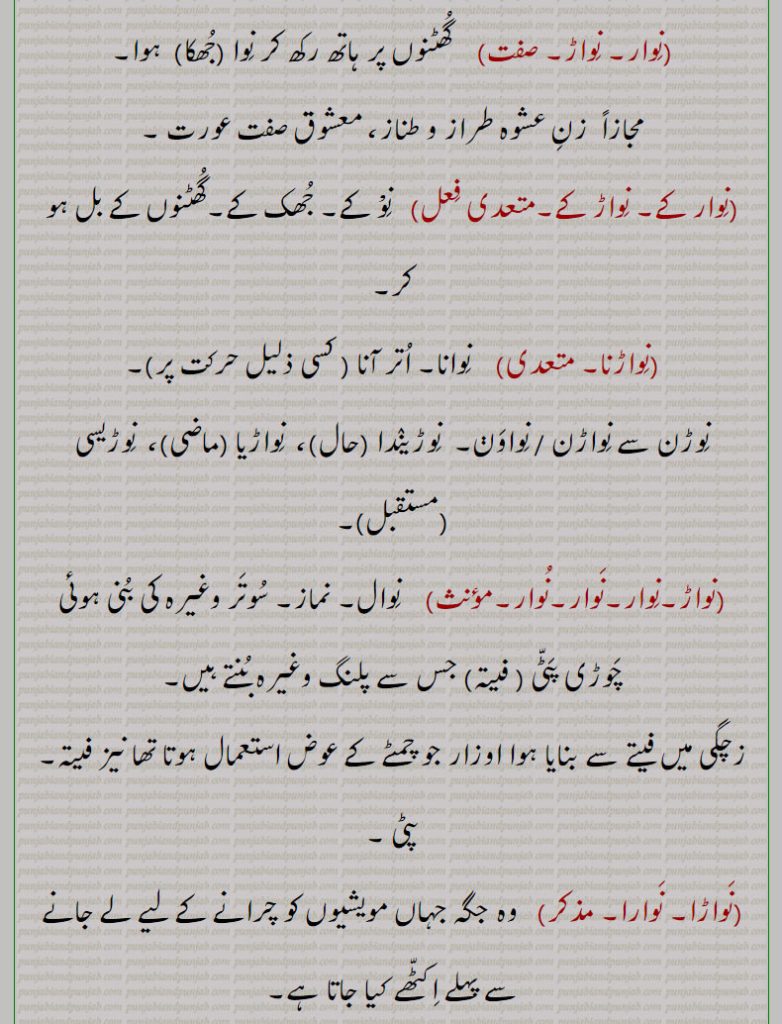 (نِوار۔ نِواڑ۔ صفت) گُھٹنوں پر ہاتھ رکھ کر نِوا (جُھکا) ہوا۔
مجازاً زنِ عشوہ طراز و طناز، معشوق صفت عورت ۔
(نِوار کے۔ نِواڑ کے۔متعدی فِعل) نِوْ کے۔ جُھک کے۔گُھٹنوں کے بل ہو
کر۔
(نِواڑنا۔ متعدی) نِوانا۔ اُتر آنا ( کسی ذلیل حرکت پر)۔
نِوڑن سے نِواڑن / نِواوَݨ۔ نِوڑیندٛا (حال)، نِواڑیا (ماضی)، نِوڑیسی
(مستقبل)۔
(نواڑ۔نِوار۔نَوار۔نُوار۔مؤنث) نِوال۔ نماز۔ سُوتَر وغیرہ کی بُنی ہوئی
چَوڑی پَٹّی ( فیتہ) جس سے پلنگ وغیرہ بُنتے ہیں۔
زچگی میں فیتے سے بنایا ہوا اوزار جو چمٹے کے عوض استعمال ہوتا تھا نیز فیتہ۔
پٹی ۔
(نَواڑا۔ نَوارا۔ مذکر) وہ جگہ جہاں مویشیوں کو چرانے کے لیے لے جانے
سے پہلے اِکٹّھے کیا جاتا ہے۔